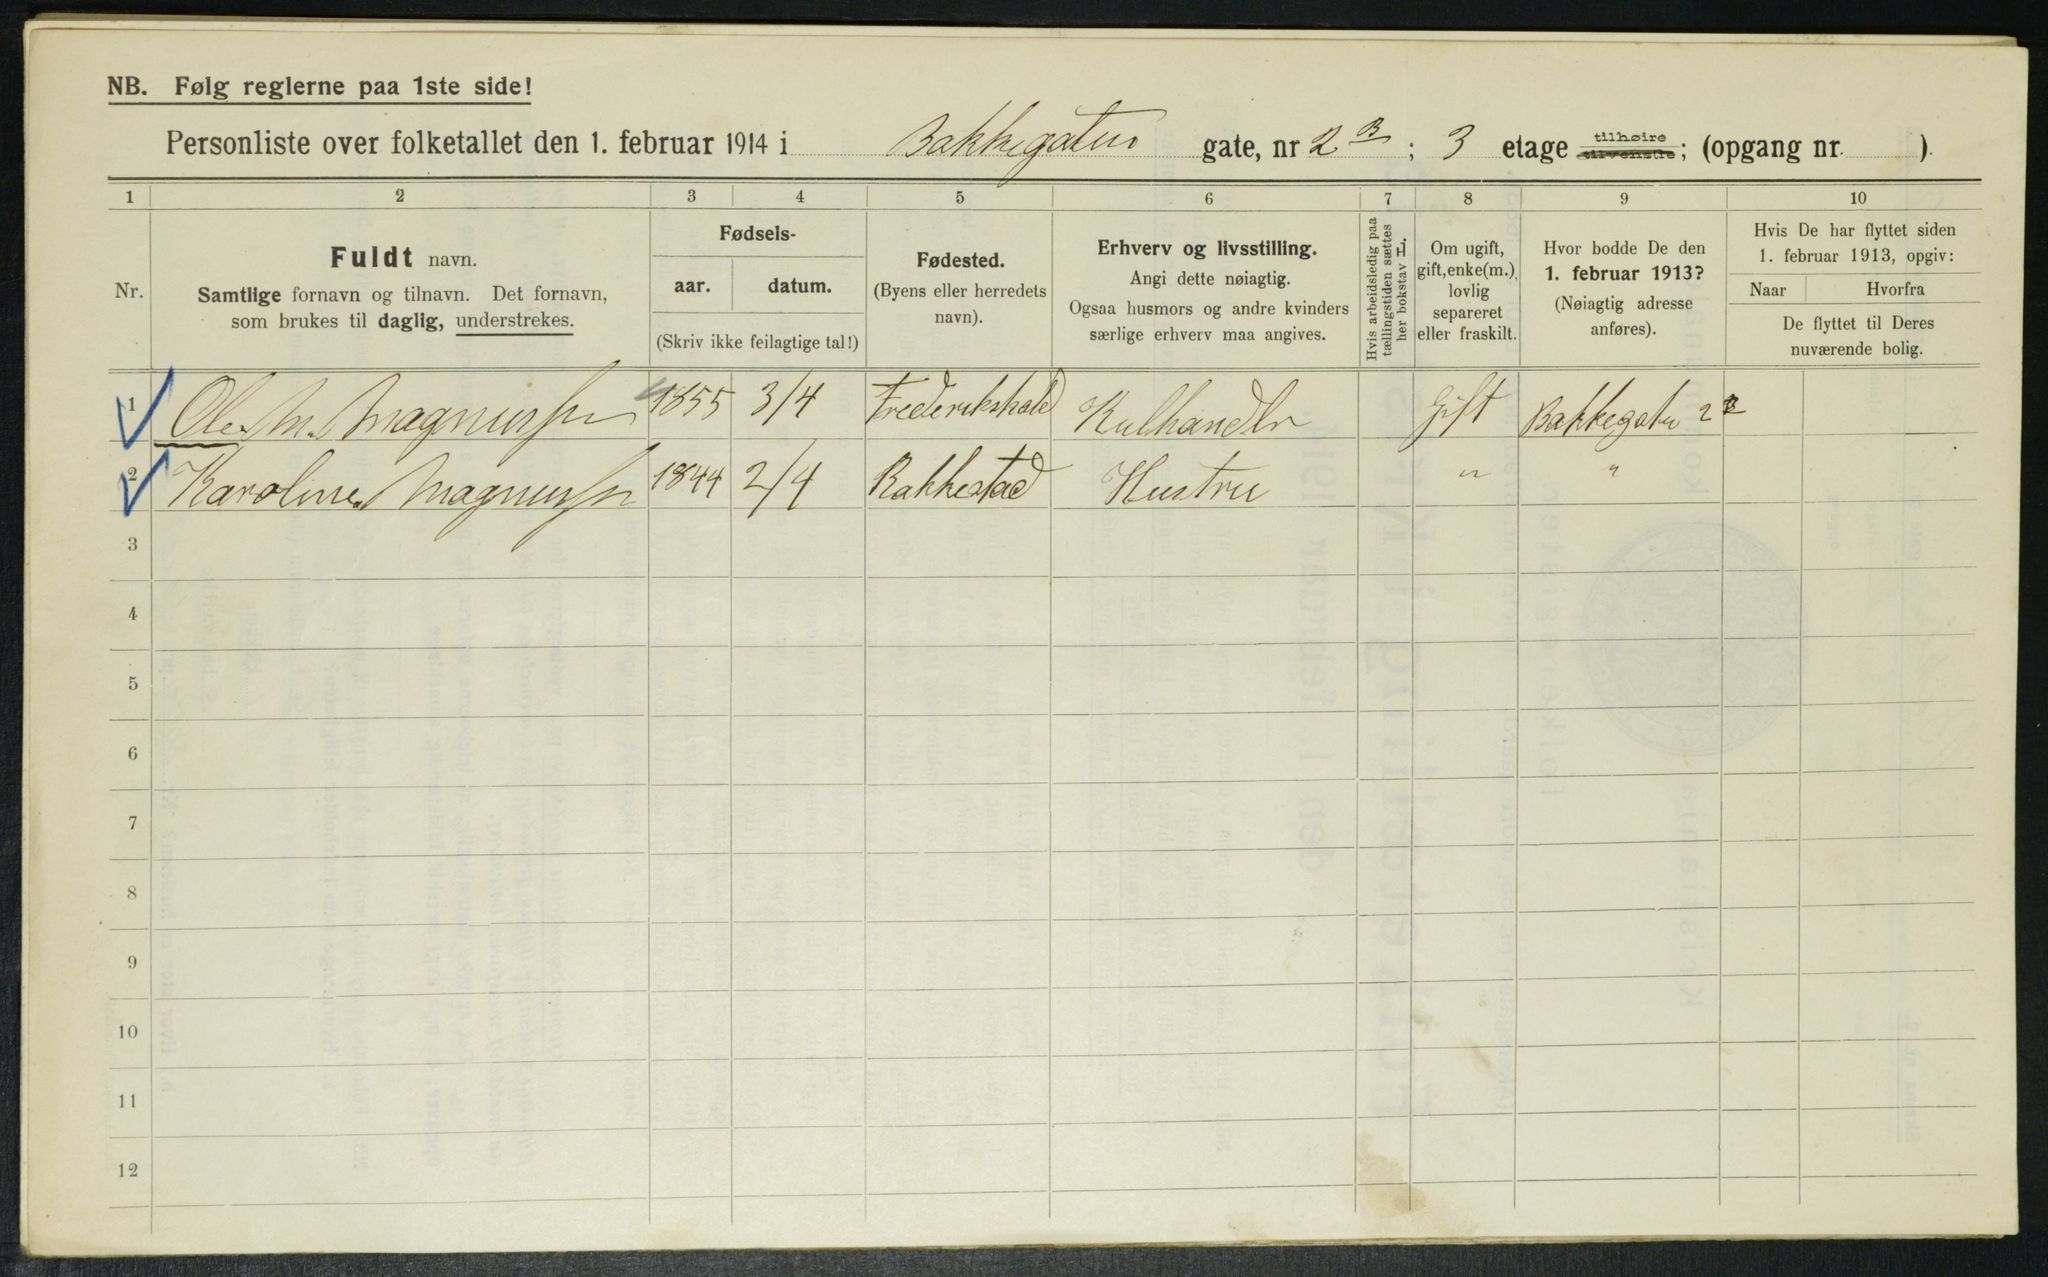 NB. Følg reglerne paa 1ste side!
Personliste over folketallet den 1. februar 1914 i Bakkegaten gate, nr 2 B; 3 etage tilhøire tilvenstre; (opgang nr. ).
1 2 3 4 5 6 7 8 9 10
Nr.
Fuldt navn.
Samtlige fornavn og tilnavn. Det fornavn,
som brukes til daglig, understrekes.
Fødsels-
aar. datum.
(Skriv ikke feilagtige tal!)
Fødested.
(Byens eller herredets
navn).
Erhverv og livsstilling.
Angi dette nøiagtig.
Ogsaa husmors og andre kvinders
særlige erhverv maa angives.
Hvis arbeidsledig paa
tællingstiden sættes
her bokstav L.
Om ugift,
gift, enke(m.),
lovlig
separeret
eller fraskilt.
Hvor bodde De den
1. februar 1913?
(Nøiagtig adresse
anføres).
Hvis De har flyttet siden
1. februar 1913, opgiv:
Naar Hvorfra
De flyttet til Deres
nuværende bolig.
1 Ole M. Magnussen 1855 3/4 Frederikshald Kulhandler Gift Bakkegaten 2
2 Karoline Magnussen 1844 2/4 Rakkestad Hustru " "
3
4
5
6
7
8
9
10
11
12